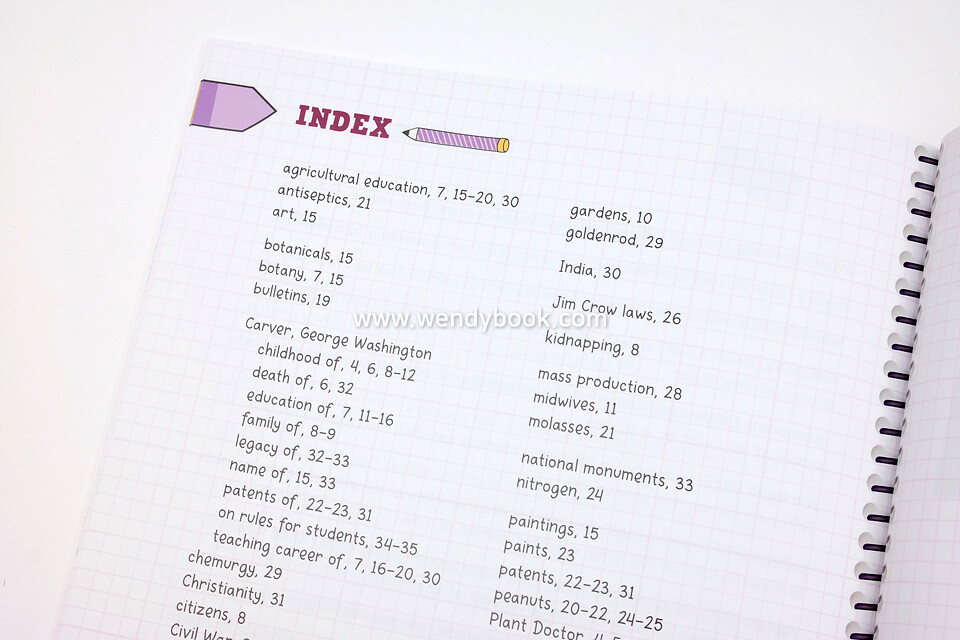 INDEX
agricultural education, 7, 15–20, 30
antiseptics, 21
art, 15
botanicals, 15
botany, 7, 15
bulletins, 19
Carver, George Washington
childhood of, 4, 6, 8–12
death of, 6, 32
education of, 7, 11–16
family of, 8–9
legacy of, 32–33
name of, 15, 33
patents of, 22–23, 31
on rules for students, 34–35
teaching career of, 7, 16–20, 30
chemurgy, 29
Christianity, 31
citizens, 8
Civil War,
gardens, 10
goldenrod, 29
India, 30
Jim Crow laws, 26
kidnapping, 8
mass production, 28
midwives, 11
molasses, 21
national monuments, 33
nitrogen, 24
paintings, 15
paints, 23
patents, 22–23, 31
peanuts, 20–22, 24–25
Plant Doctor, 4,
www.wendybook.com